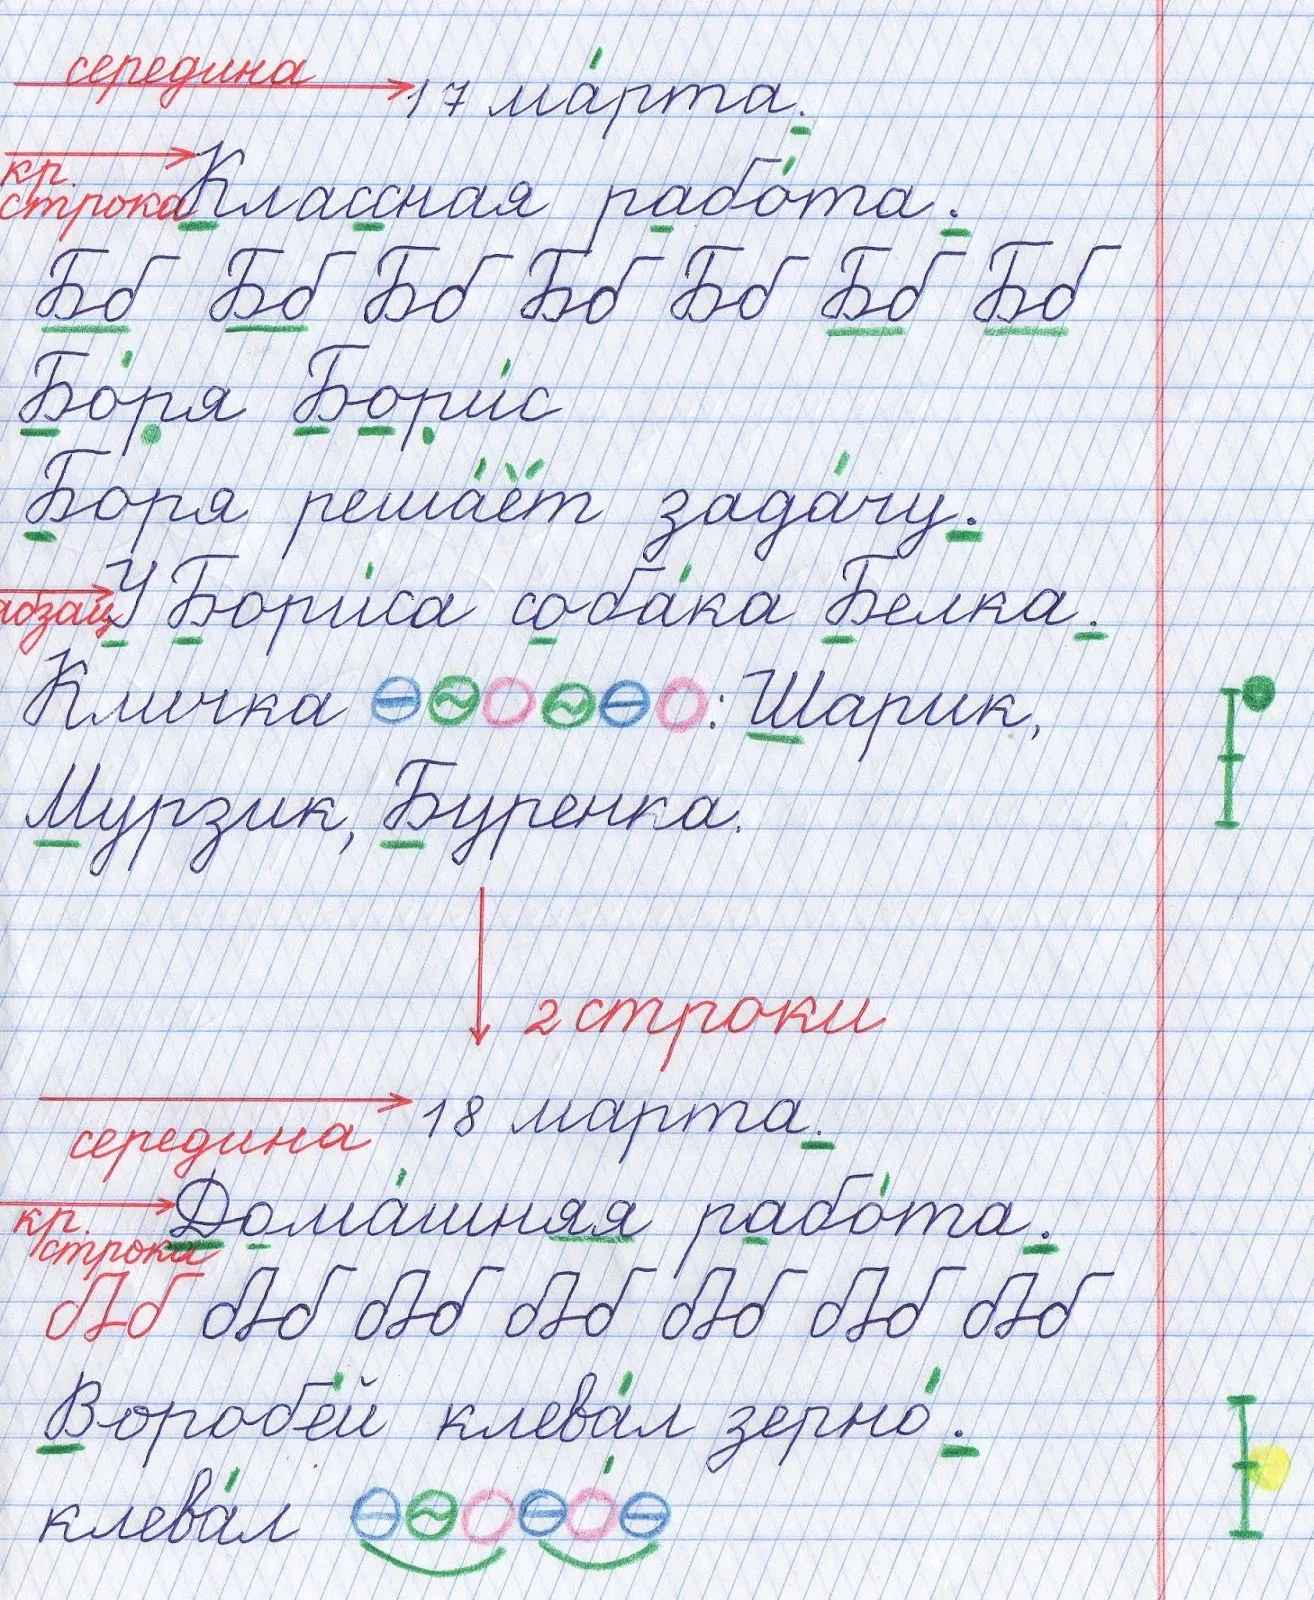 середина 17 марта.
кр. строка Классная работа.
Бб Бб Бб Бб Бб Бб Бб
Боря Борис
Боря решаёт задачу.
абзац У Бориса собака Белка.
Кличка : Шарик,
Мурзик, Буренка.
2 строки
18 марта.
середина
кр. строка Домашняя работа.
Пб Пб Пб Пб Пб Пб Пб
Воробей клевал зерно.
клевал